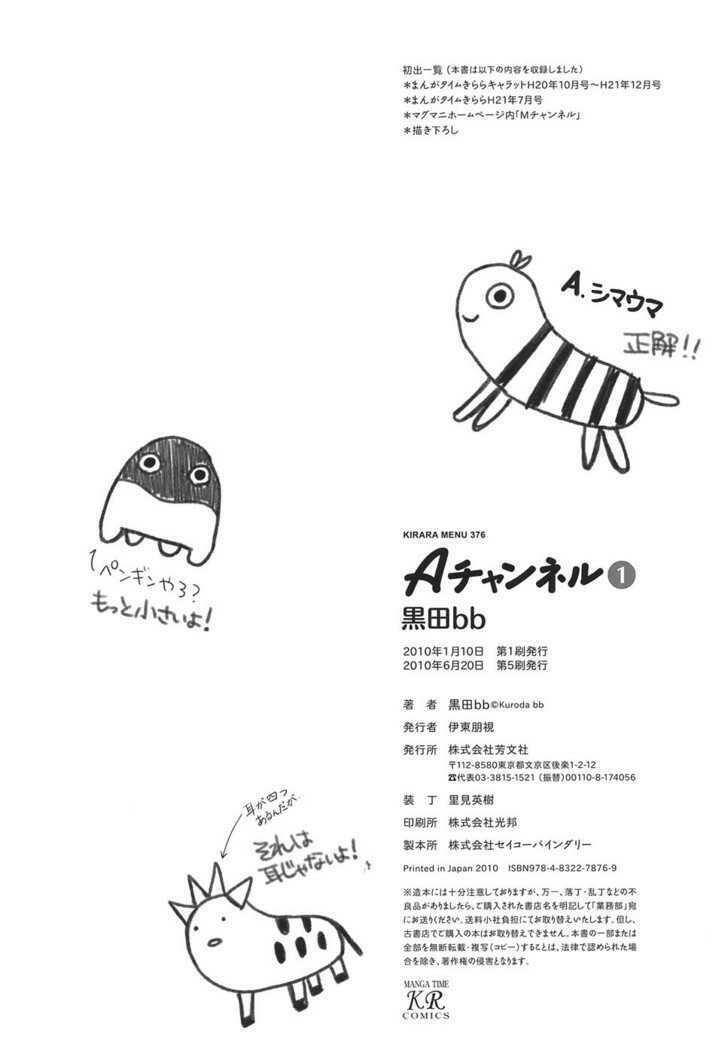 初出一覧（本書は以下の内容を収録しました）
＊まんがタイムきららキャラットH20年10月号～H21年12月号
＊まんがタイムきららH21年7月号
＊マグマニホームページ内「Mチャンネル」
＊描き下ろし
A. シマウマ
正解!!
ペンギンやろ?
もっと小さいよ!
KIRARA MENU 376
Aチャンネル 1
黒田bb
2010年1月10日 第1刷発行
2010年6月20日 第5刷発行
著 者 黒田bb©Kuroda bb
発行者 伊東朋視
発行所 株式会社芳文社
〒112-8580東京都文京区後楽1-2-12
☎代表03-3815-1521 （振替）00110-8-174056
装 丁 里見英樹
印刷所 株式会社光邦
製本所 株式会社セイコーバインダリー
Printed in Japan 2010 ISBN978-4-8322-7876-9
※造本には十分注意しておりますが、万一、落丁・乱丁などの不
良品がありましたら、ご購入された書店名を明記して「業務部」宛
にお送りください。送料小社負担にてお取り替えいたします。但し、
古書店でご購入の本はお取り替えできません。本書の一部または
全部を無断転載・複写（コピー）することは、法律で認められた場
合を除き、著作権の侵害となります。
耳が四つ
あるんだが…
それは
耳じゃないよ!
MANGA TIME
KR
COMICS